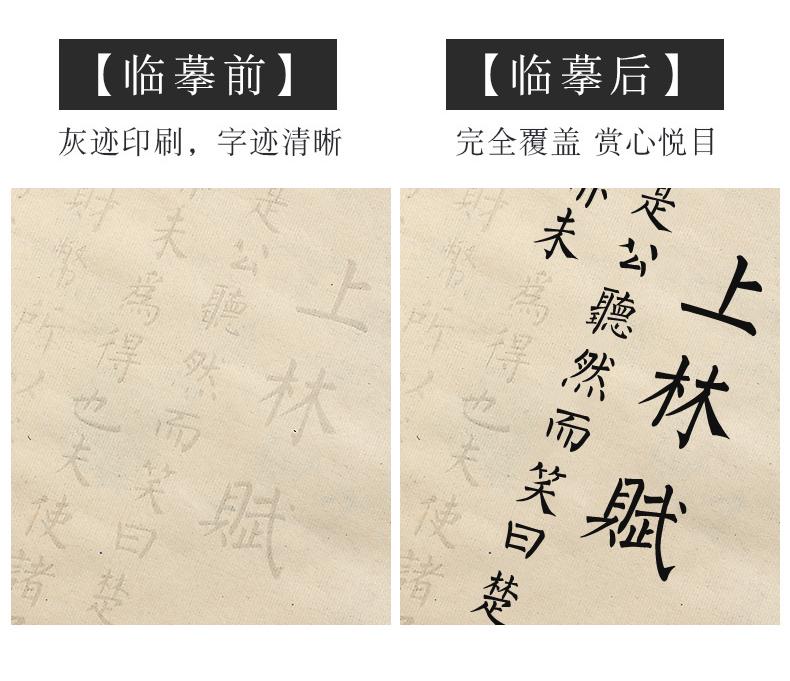 【临摹前】
灰迹印刷，字迹清晰
【临摹后】
完全覆盖 赏心悦目
上林賦
是公聽然而笑曰楚
未為得也夫使諸
財幣所以
上林賦
是公聽然而笑曰楚
未為得也夫使諸
財幣所以